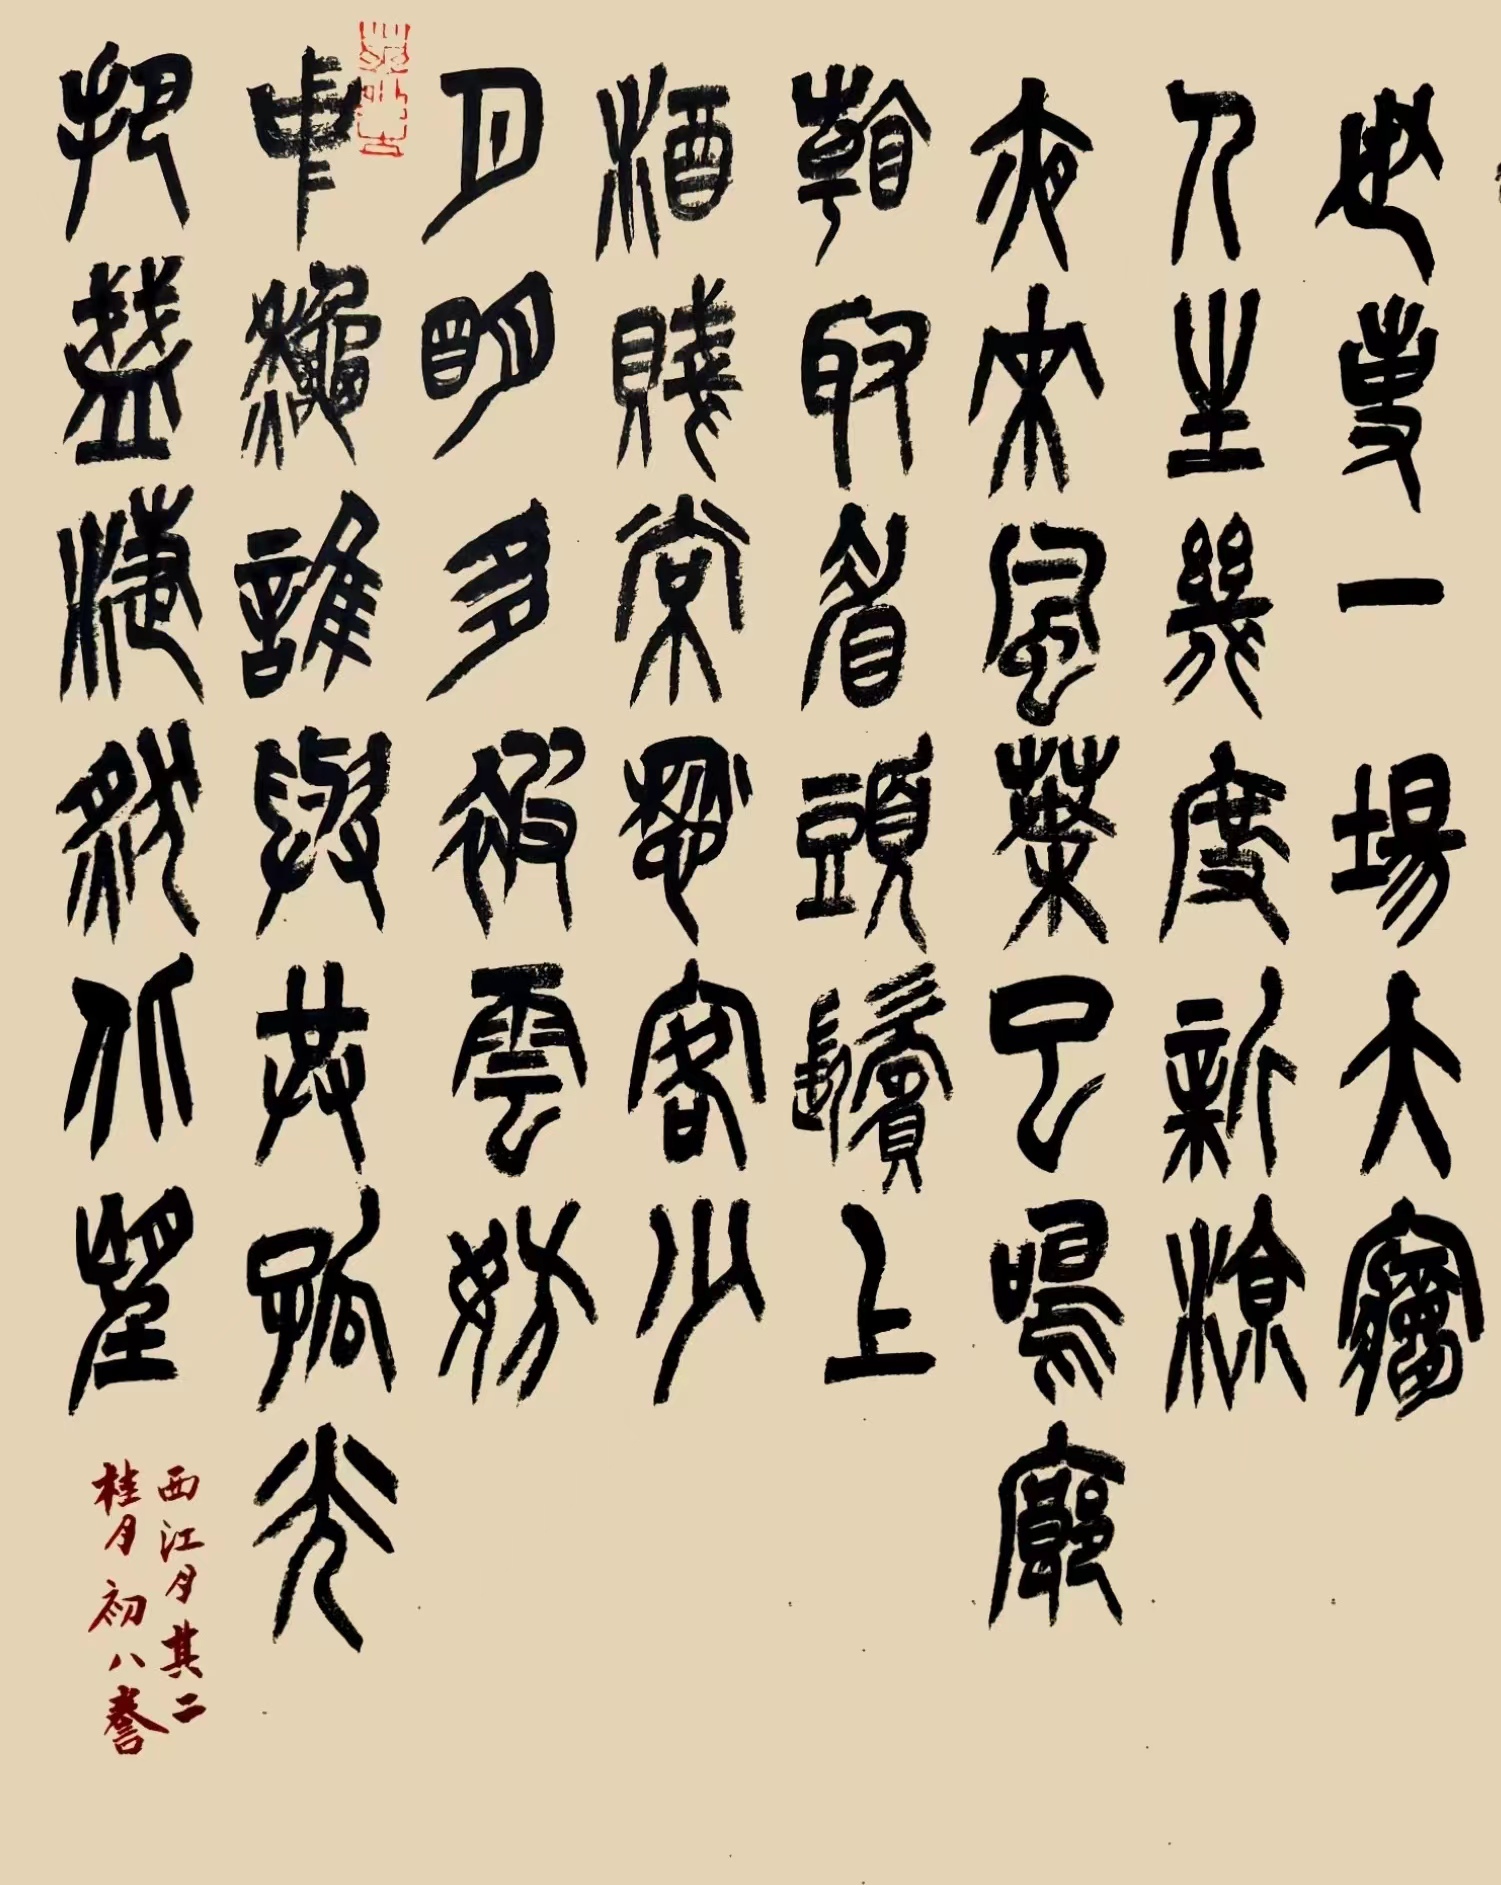 世事一場大夢
人生幾度新涼
夜來風葉已鳴廊
看取眉頭鬢上
酒賤常愁客少
月明多被雲妨
中秋誰與共孤光
把盞淒然北望
西江月其二
桂月初八誊